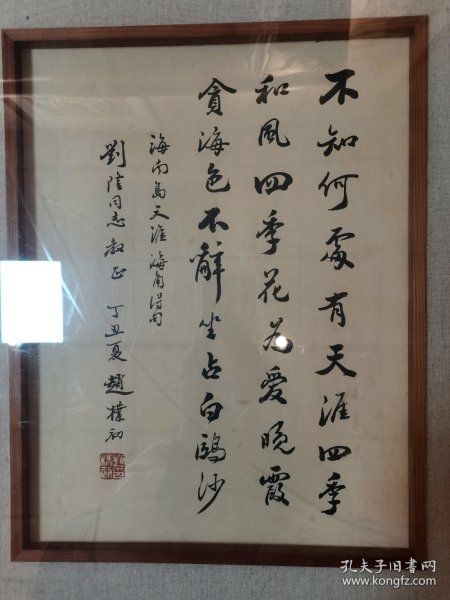 不知何處有天涯四季
和風四季花为愛晚霞
貪海色不辭坐占白鷗沙
海南島天涯海角得句
劉隆同志教正 丁丑夏 趙樸初
孔夫子旧书网
www.kongfz.com